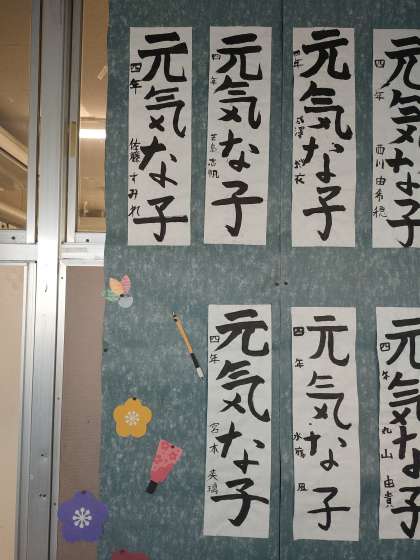 元気な子
四年 佐藤すみれ
元気な子
四年
元気な子
四年
元気な子
四年 西川由希穂
元気な子
四年 宮本英璃
元気な子
四年 水稀
元気な子
四年 丸山由貴